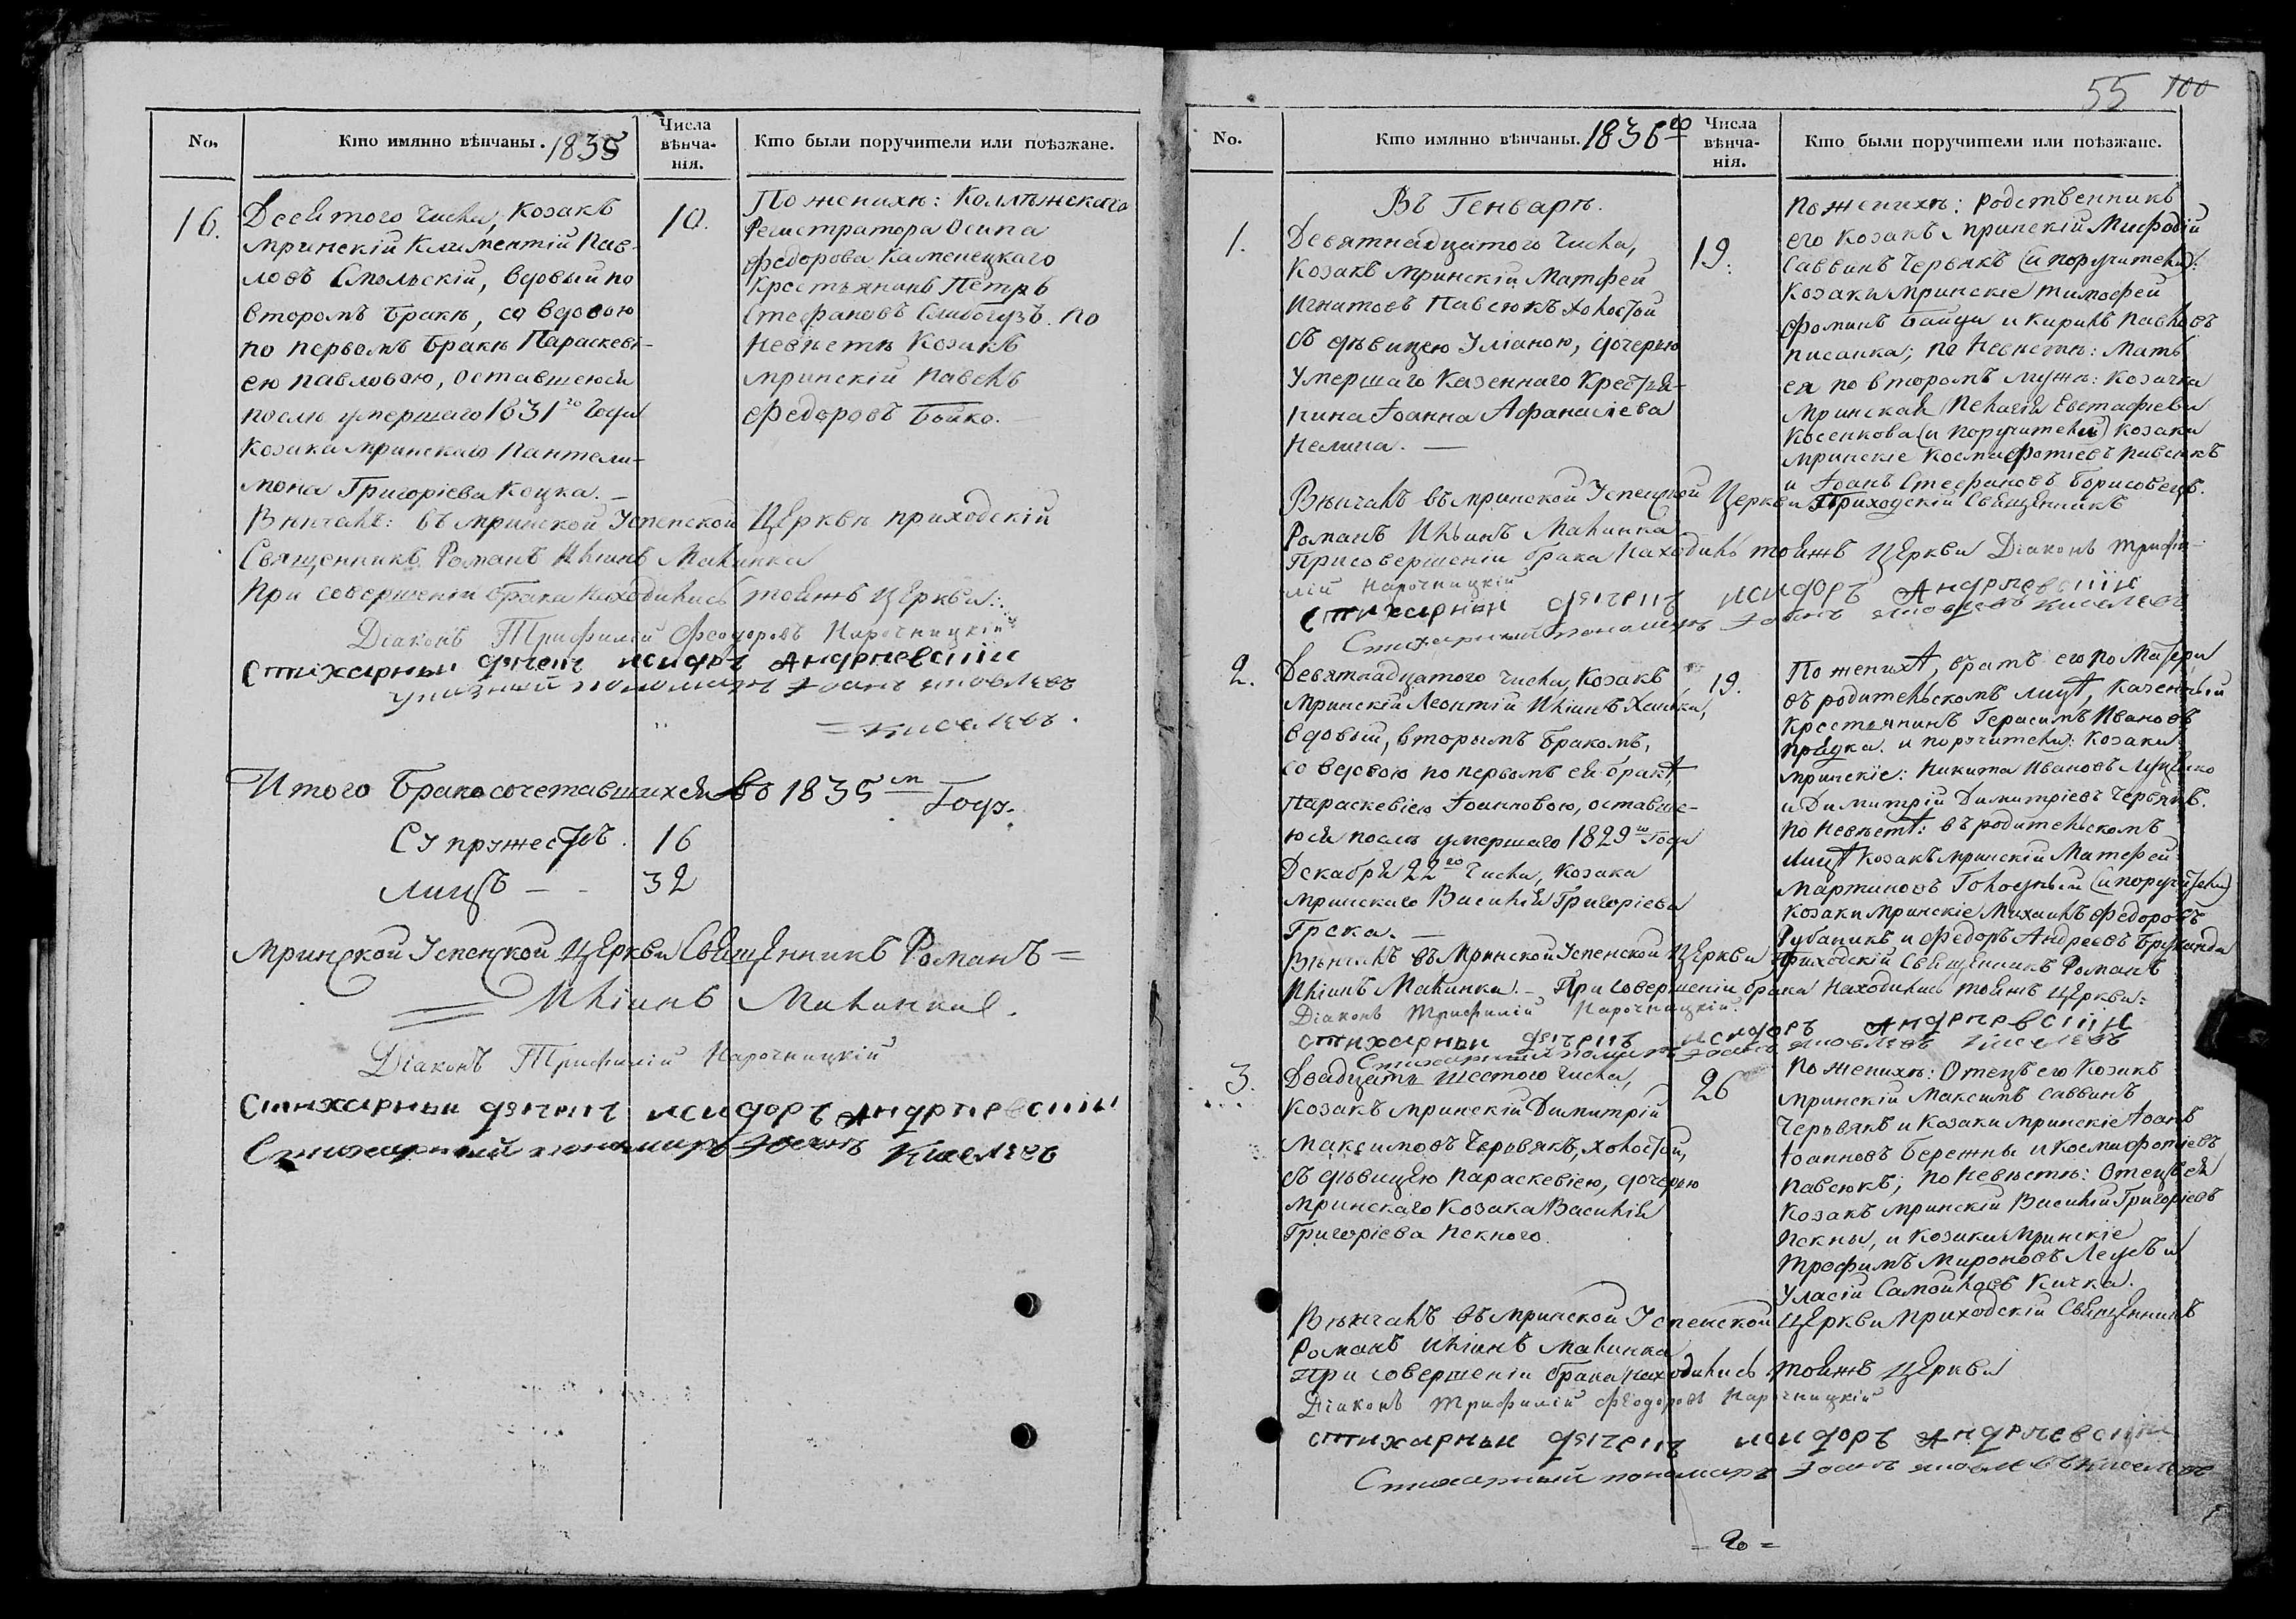 No.
Кто имянно вѣнчаны. 1835
Числа вѣнча-нія.
Кто были поручители или поѣзжане.
16.
Десятого числа, Козакъ
мринскій Климентій Пав-
ловъ Смольскій, вдовый по
второмъ бракѣ, со вдовою
по первомъ бракѣ Параскеві-
ею Павловою, оставшеюся
послѣ умершаго 1831го Года
Козака мринскаго Пантели-
мона Григоріева Коцка. —
10.
По женихѣ: Коллѣжскаго
Регистратора Осипа
Федорова Каменецкаго
Крестьянинъ Петръ
Стефановъ. По
невѣстѣ Козакъ
мринскій Павелъ
Федоровъ Бойко. —
Вѣнчалъ: въ мринской Успенской Церквѣ приходскій
Священникъ Романъ Иліинъ Малинка
При совершеніи брака находились тояжъ Церкви:
Діаконъ Трифилій Феодоровъ Нарочницкій
Стихарный дячекъ исидоръ Андріевскій
пономарь Іоанъ яковлевъ
= киселевъ.
Итого бракосочетавшихся во 1835м Годѣ.
Супружествъ. 16
Лицъ — - 32
Мринской Успенской Церкви Священникъ Романъ =
= Иліинъ Малинка.
Діаконъ Трифилій Нарочницкій
Стихарный дячекъ исидоръ Андріевскій
Стихарный пономарь Іоанъ Киселевъ
55 100
No.
Кто имянно вѣнчаны. 1836го
Числа вѣнча-нія.
Кто были поручители или поѣзжане.
Въ Генварѣ.
1.
Девятнадцатого числа,
Козакъ мринскій Матфей
Игнатовъ Павсюкъ холостой
съ дѣвицею Уліаною, дочерью
Умершаго Казеннаго Крестья-
нина Іоанна Афанасіева
Нелипа. —
19.
По женихѣ: родственникъ
его Козакъ мринскій Мифодій
Саввинъ Червякъ (и поручители):
Козаки мринскіе тимофей
Фоминъ Байда и Кирилъ Павловъ
писанка; по Невѣстѣ: Мать
ея по второмъ мужѣ: Козачка
мринская Пелагія Евстафіева
Косенкова (и поручители) Козаки
мринскіе Косма Фотіевъ Павсюкъ
и Іоанъ Стефановъ Борисовецъ.
Вѣнчалъ въ мринской Успенской Церкви Приходскій Священникъ
Романъ Ильинъ Малинка
При совершеніи брака находились тояжъ Церкви Діаконъ Трифи-
лій Нарочницкій
стихарный дячекъ исидоръ Андріевскій
Стихарный пономарь Іоанъ яковлевъ киселевъ
2.
Девятнадцатого числа, Козакъ
Мринскій Леонтій Иліинъ,
вдовый, вторымъ бракомъ,
со вдовою по первомъ ея бракѣ
Параскевіею Іоанновою, оставше-
юся послѣ умершаго 1829го Года
Декабря 22го числа, Козака
мринскаго Василія Григоріева
Грека. —
19.
По женихѣ, братъ его по матери
въ родительскомъ лицѣ, Казенный
Крестьянинъ Герасимъ Ивановъ
прядка. и поручители: Козаки
мринскіе: Никита Ивановъ Луценко
и Димитрій Димитріевъ Червякъ.
По невѣстѣ: въ родительскомъ
лицѣ Козакъ мринскій Матфей
Мартиновъ Голодный (и поручители)
Козаки мринскіе Михаилъ Федоровъ
Рубаникъ и Федоръ Андреевъ
Вѣнчалъ въ Мринской Успенской Церкви Приходскій Священникъ Романъ
Иліинъ Малинка. — При совершеніи брака находились тояжъ Церкви:
Діаконъ Трифилій Нарочницкій.
стихарный дячекъ исидоръ Андріевскій
Стихарный пономарь Іоанъ яковлевъ Киселевъ
3.
Двадцать шестого числа,
Козакъ мринскій Димитрій
Максимовъ Червякъ, холостой,
съ дѣвицею Параскевіею, дочерью
Мринскаго Козака Василія
Григоріева Пекного.
26
По женихѣ: Отецъ его Козакъ
мринскій Максимъ Саввинъ
Червякъ и Козаки мринскіе Іоанъ
Іоанновъ Бережны и Косма Фотіевъ
Павсюкъ; по Невѣстѣ: Отецъ ея
Козакъ мринскій Василій Григоріевъ
Пекны, и Козаки Мринскіе
Трофимъ Мироновъ Лецъ и
Уласій Самойловъ Кичка.
Вѣнчалъ въ мринской Успенской Церкви Приходскій Священникъ
Романъ Иліинъ Малинка
При совершеніи брака находились тояжъ Церкви
Діаконъ Трифилій Феодоровъ Нарочницкій
стихарный дячекъ исидоръ Андріевскій
Стихарный пономарь Іоанъ яковлевъ Киселевъ